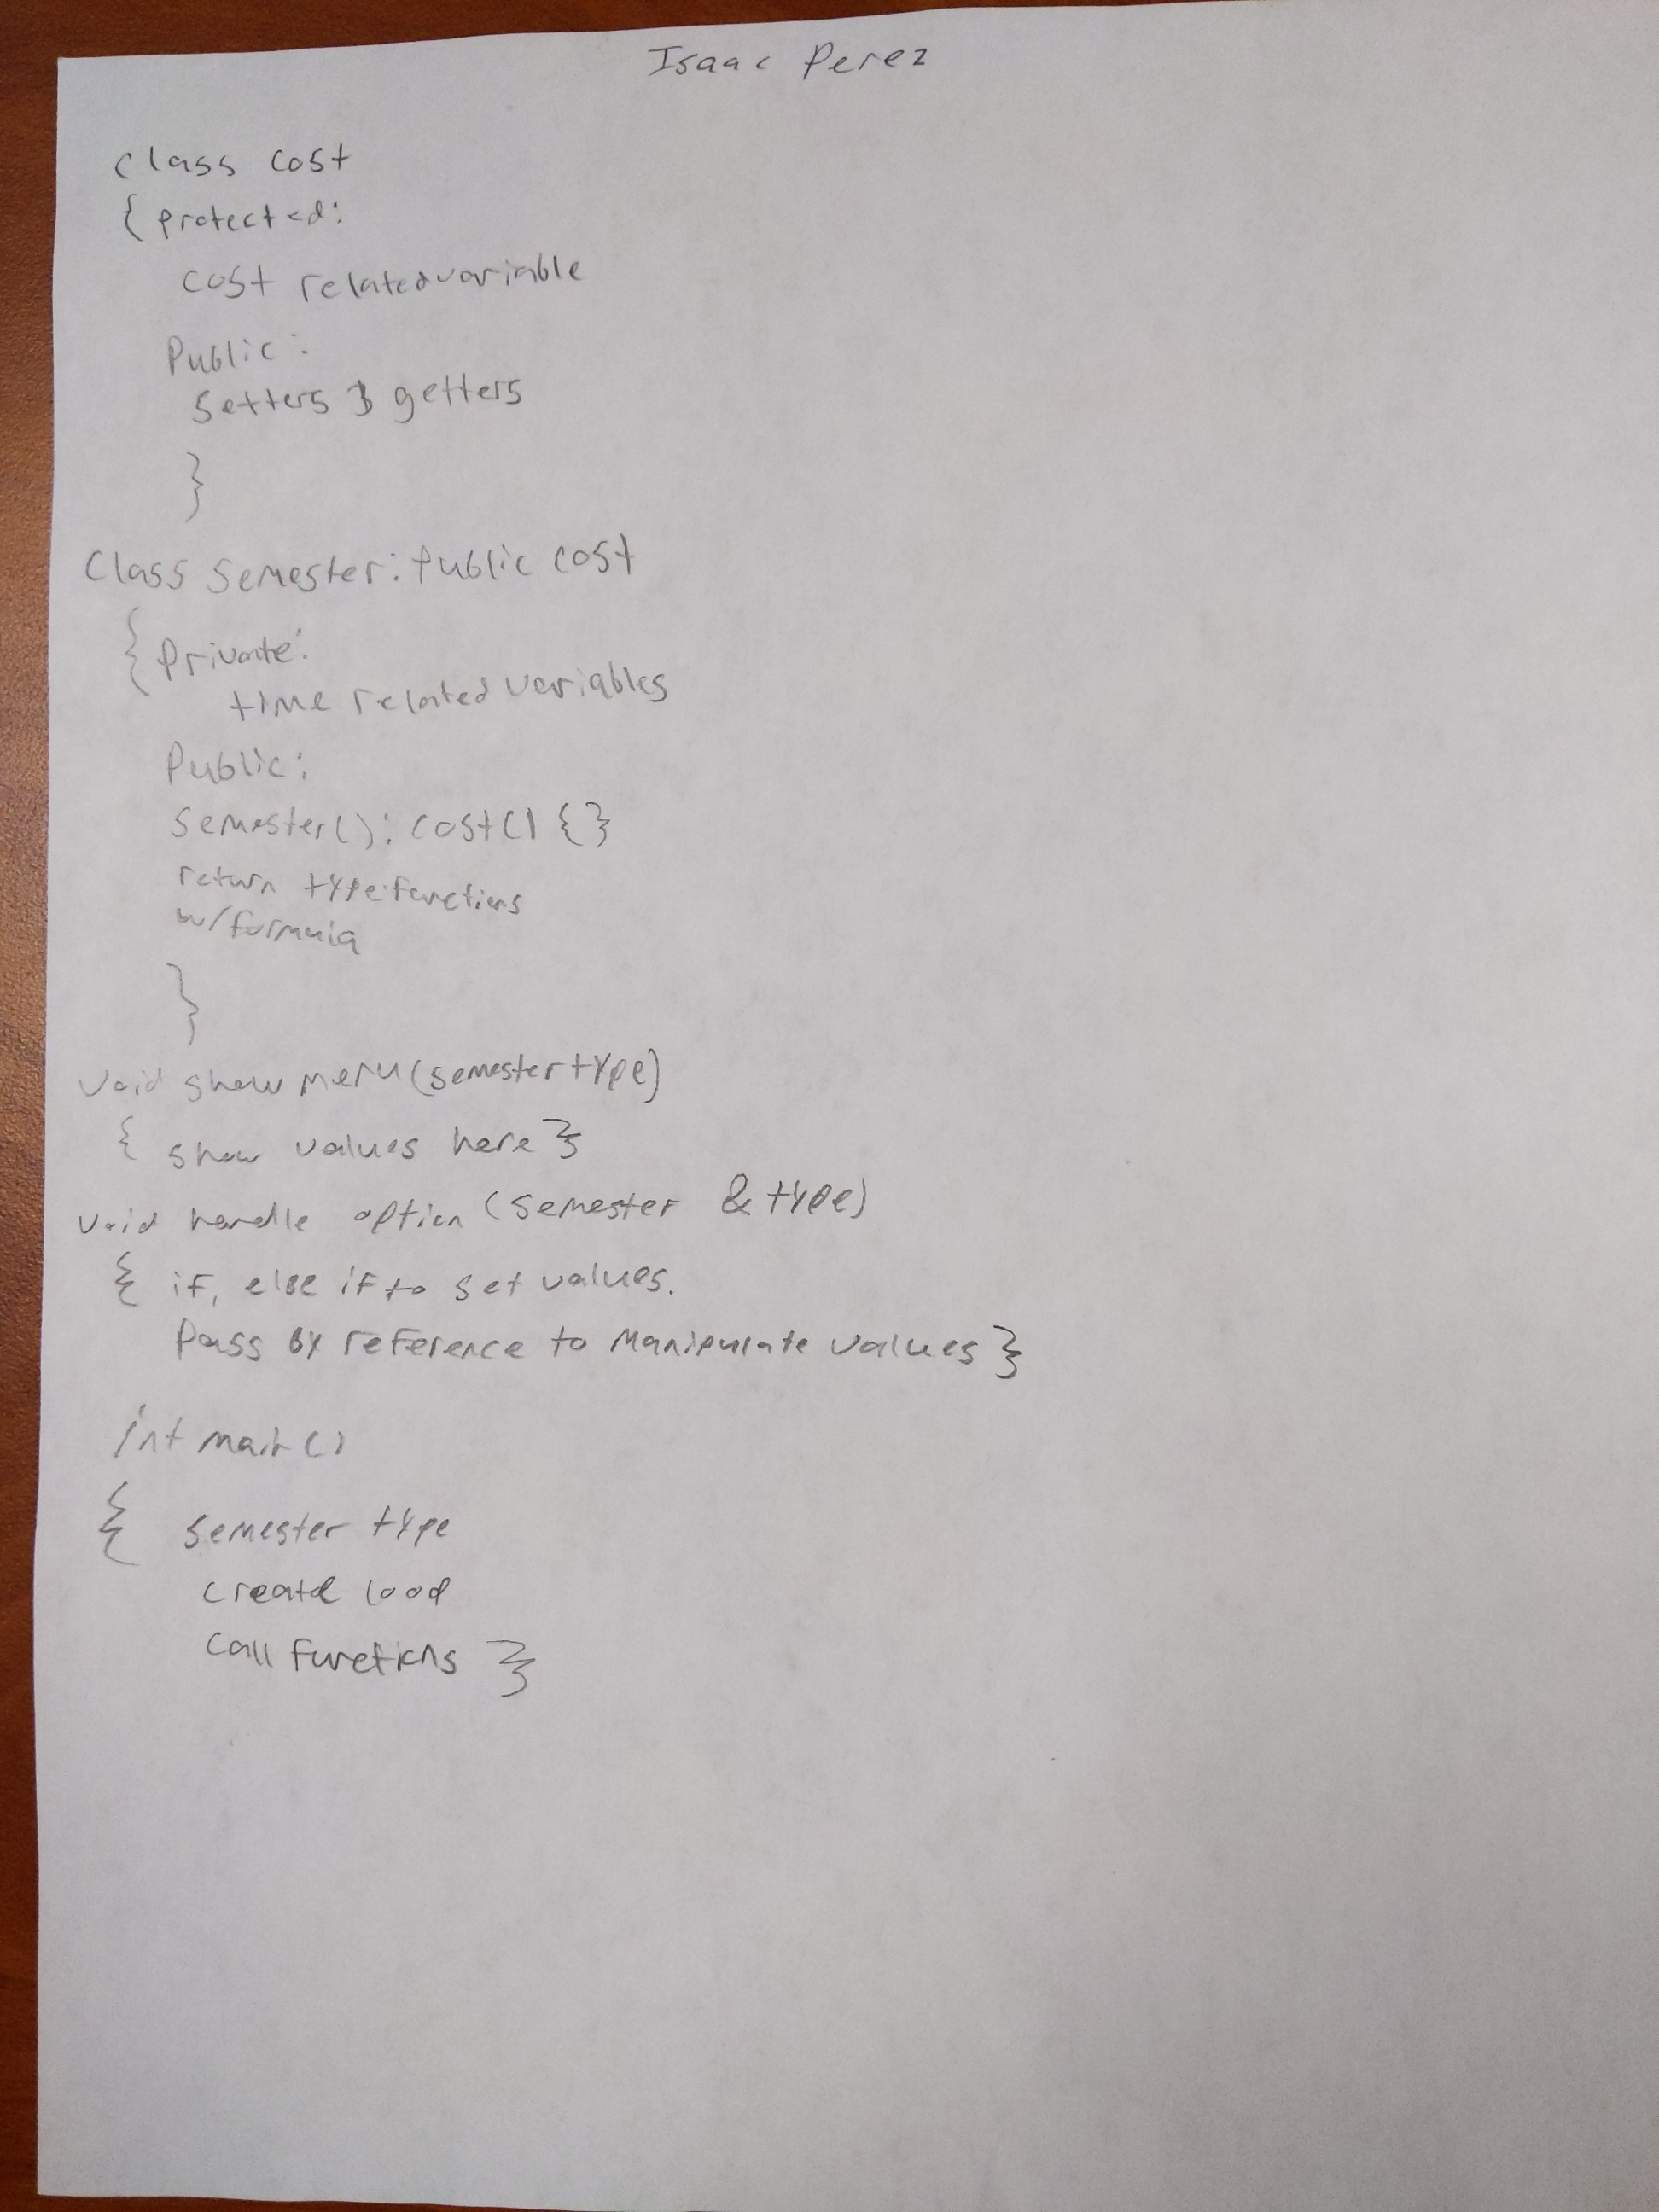 Isaac Perez
class cost
{ protected:
cost related variable
Public:
setters & getters
}
Class Semester: Public cost
{ Private:
time related variables
Public:
Semester(): cost() { }
return type functions
w/ formula
}
void show menu (semester type)
{ show values here }
void handle option (semester & type)
{ if, else if to set values.
Pass by reference to manipulate values }
int main ()
{ semester type
create
call functions }